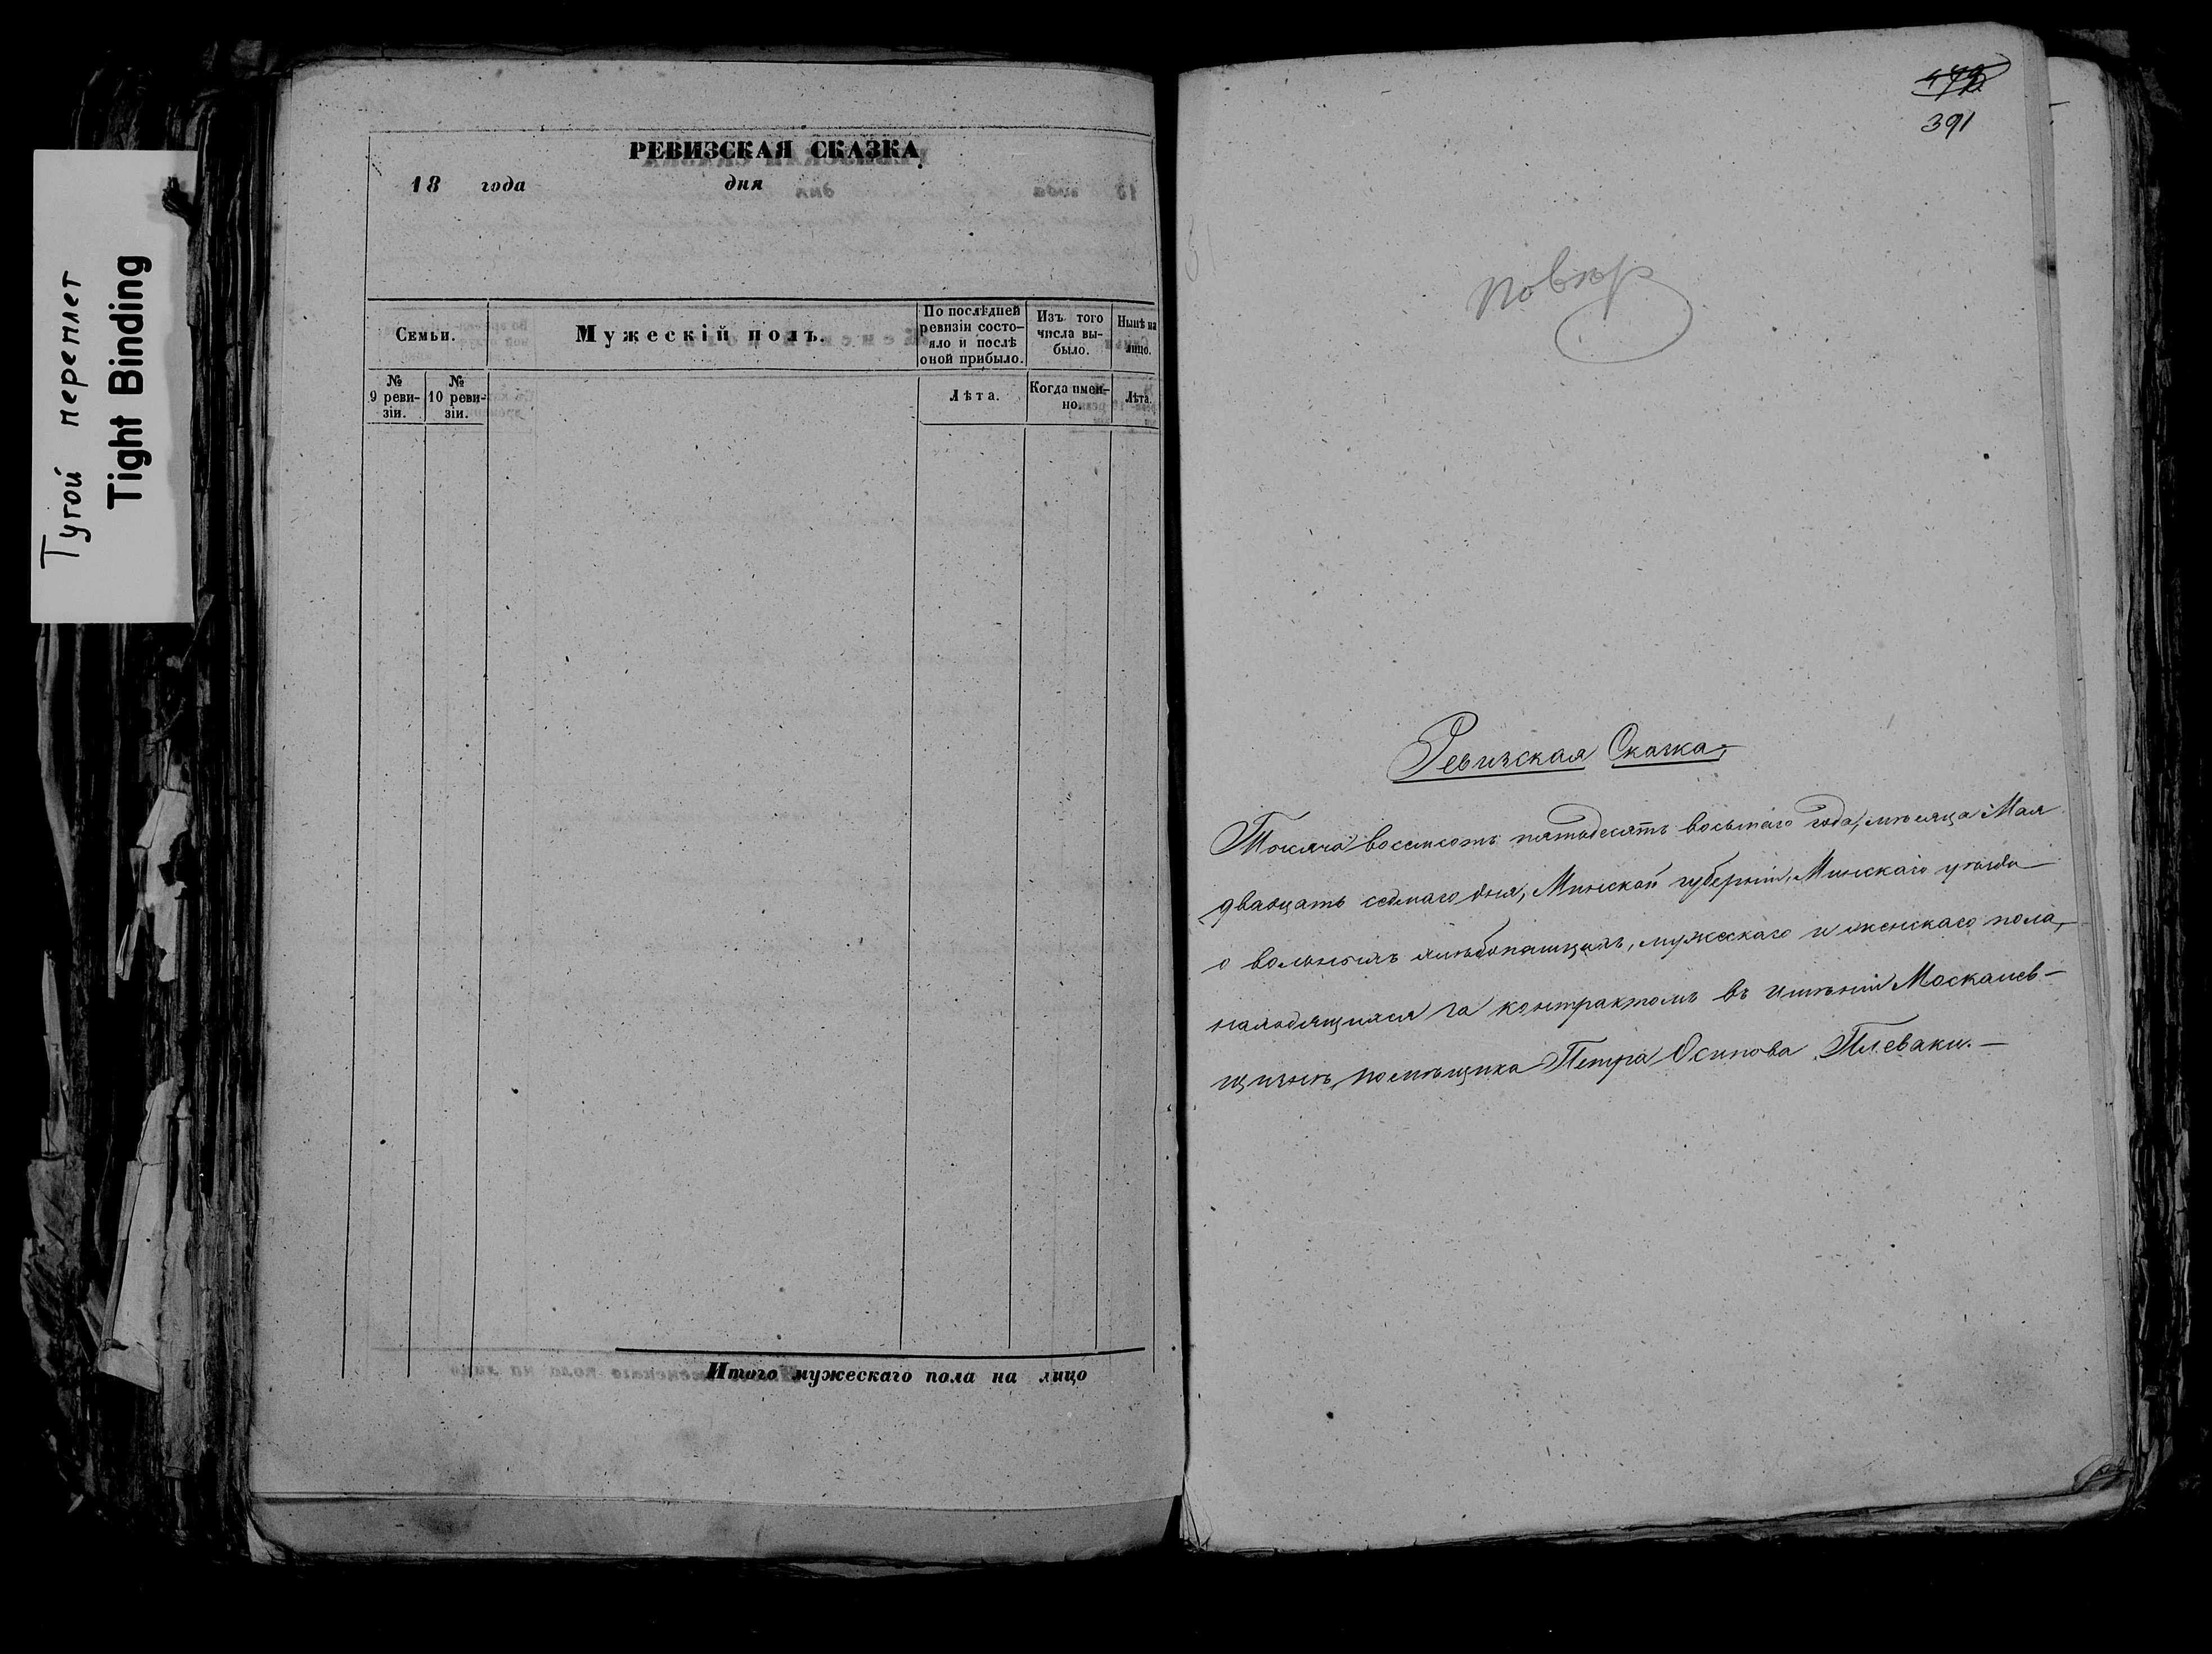 Тугой переплет
Tight Binding
РЕВИЗСКАЯ СКАЗКА
18 года дня
Семьи.
Мужескій полъ.
По послѣдней ревизіи состо-яло и послѣ оной прибыло.
Изъ того числа вы-было.
Нынѣ на лицо.
№ 9 реви-зіи.
№ 10 реви-зіи.
Лѣта.
Когда имен-но.
Лѣта.
Итого мужескаго пола на лицо
391
Повѣр
Ревизская Сказка,
Тысяча восемьсотъ пятьдесятъ восьмаго года, мѣсяца Мая
двадцать седмаго дня, Минской губерніи, Минскаго уѣзда
о вольныхъ хлѣбопашцахъ, мужескаго и женскаго пола,
находящихся за контрактомъ въ имѣніи Москалев-
щизнѣ, помѣщика Петра Осипова Плеваки. —